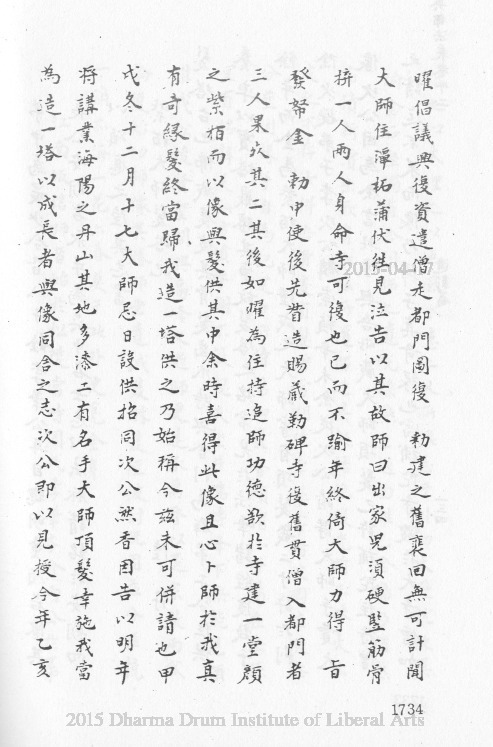 曜倡議興復資遣僧走都門圖復　勑建之舊裵回無可計聞
大師住潭柘蒲伏徃見泣告以其故師曰出家兒須硬豎筋骨
拚一人兩人身命寺可復也已而不踰年終倚大師力得　旨
發帑金　勑中使後先賫造賜藏勒碑寺復舊貫僧入都門者
三人果炭其二其後如曜為住持追師功德欲於寺建一堂顏
之紫栢而以像與髮供其中余時喜得此像且心卜師於我真
有奇緣髮終當歸我造一塔供之乃始稱今茲未可併請也甲
戌冬十二月十七大師忌日設供招同次公爇香因告以明年
將講業海陽之丹山其地多漆工有名手大師頂髮幸施我當
為造一塔以成長者與像同舍之志次公即以見授今年乙亥
1734
2015-04-17
2015 Dharma Drum Institute of Liberal Arts